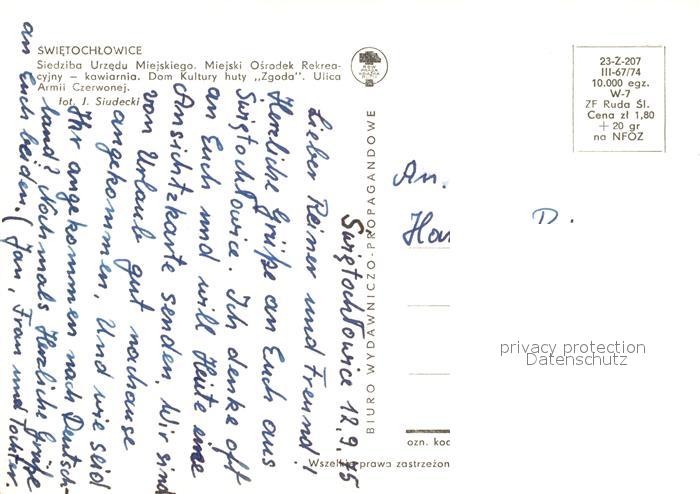 ŚWIĘTOCHŁOWICE
Siedziba Urzędu Miejskiego. Miejski Ośrodek Rekrea-
cyjny — kawiarnia. Dom Kultury huty „Zgoda". Ulica
Armii Czerwonej.
fot. J. Siudecki
23-Z-207
III-67/74
10.000 egz.
W-7
ZF Ruda Śl.
Cena zł 1,80
+ 20 gr
na NFOZ
BIURO WYDAWNICZO-PROPAGANDOWE
Świętochłowice 18.9.75
Lieber Reiner und Freund!,
Herzliche Grüße an Euch aus
Świętochłowice. Ich denke oft
an Euch und will Heute eine
Ansichtzkarte senden. Wir sind
vom Urlaub gut nachause
angekommen. Und wie seid
Ihr angekommen nach Deutsch-
land? Noch mals Herzliche Grüße
an Euch beiden. (Jan, Frau und Tochter.
An.
D.
privacy protection
Datenschutz
ozn. kod
Wszelkie prawa zastrzeżon